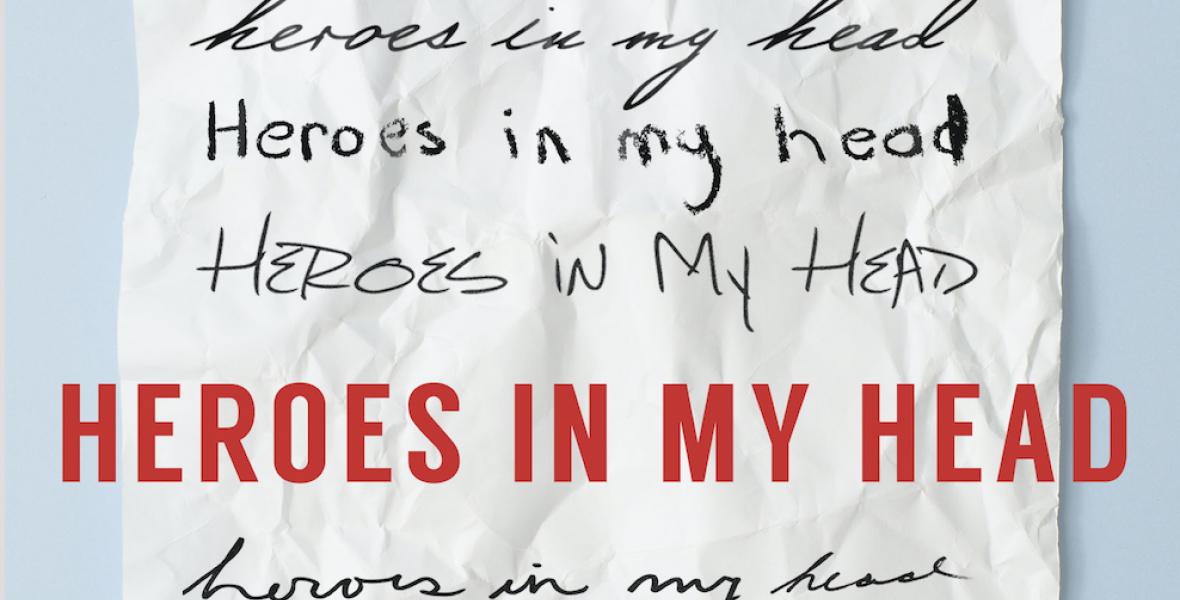 heroes in my head
Heroes in my head
HEROES iN My HEAD
HEROES IN MY HEAD
heroes in my head